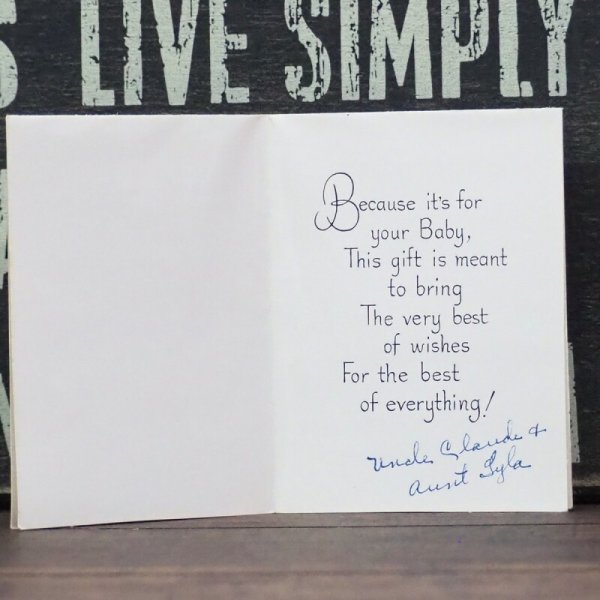 LIVE SIMPLY
Because it's for
your Baby,
This gift is meant
to bring
The very best
of wishes
For the best
of everything!
Uncle Claude &
Aunt Lyla